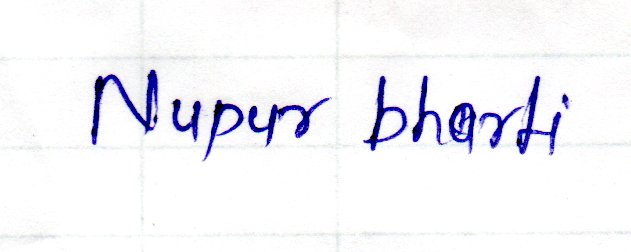 Nupur bharti